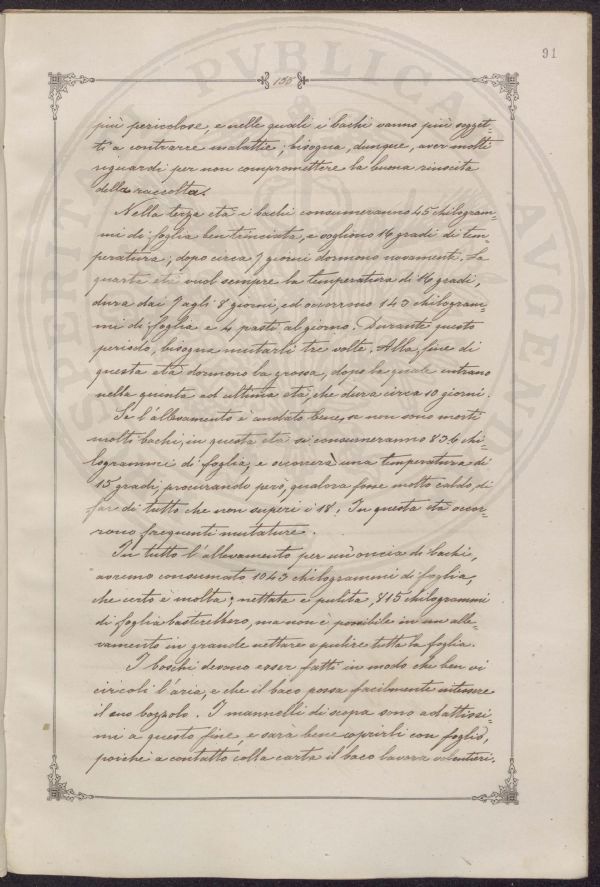 91
155
PVBLICAE AVGENDAE
più pericolose, e nelle quali i bachi vanno più sogget-
ti a contrarre malattie; bisogna, dunque, aver molti
riguardi per non compromettere la buona riuscita
della raccolta.
Nella terza età i bachi consumeranno 45 chilogram-
mi di foglia ben trinciata, e vogliono 16 gradi di tem-
peratura; dopo circa 7 giorni dormono novamenti. La
quarta età vuol sempre la temperatura di 16 gradi,
dura dai 7 agli 8 giorni, ed occorrono 143 chilogram-
mi di foglia e 4 pasti al giorno. Durante questo
periodo, bisogna mutarli tre volte. Alla fine di
questa età dormono la grossa, dopo la quale entrano
nella quinta ed ultima età, che dura circa 10 giorni.
Se l'allevamento è andato bene, se non sono morti
molti bachi, in questa età si consumeranno 836 chi-
logrammi di foglia, e occorrerà una temperatura di
15 gradi, procurando però, qualora fosse molto caldo, di
far di tutto che non superi i 18. In questa età occor-
rono frequenti mutature.
In tutto l'allevamento per un'oncia di bachi,
avremo consumato 1043 chilogrammi di foglia,
che certo è molta; nettata e pulita, 815 chilogrammi
di foglia basterebbero, ma non è possibile in un alle-
vamento in grande nettare e pulire tutta la foglia.
I boschi devono esser fatti in modo che ben vi
circoli l'aria, e che il baco possa facilmente intessere
il suo bozzolo. I mannelli di scopa sono adattissi-
mi a questo fine, e sarà bene coprirli con foglio,
poichè a contatto colla carta il baco lavora volentieri.